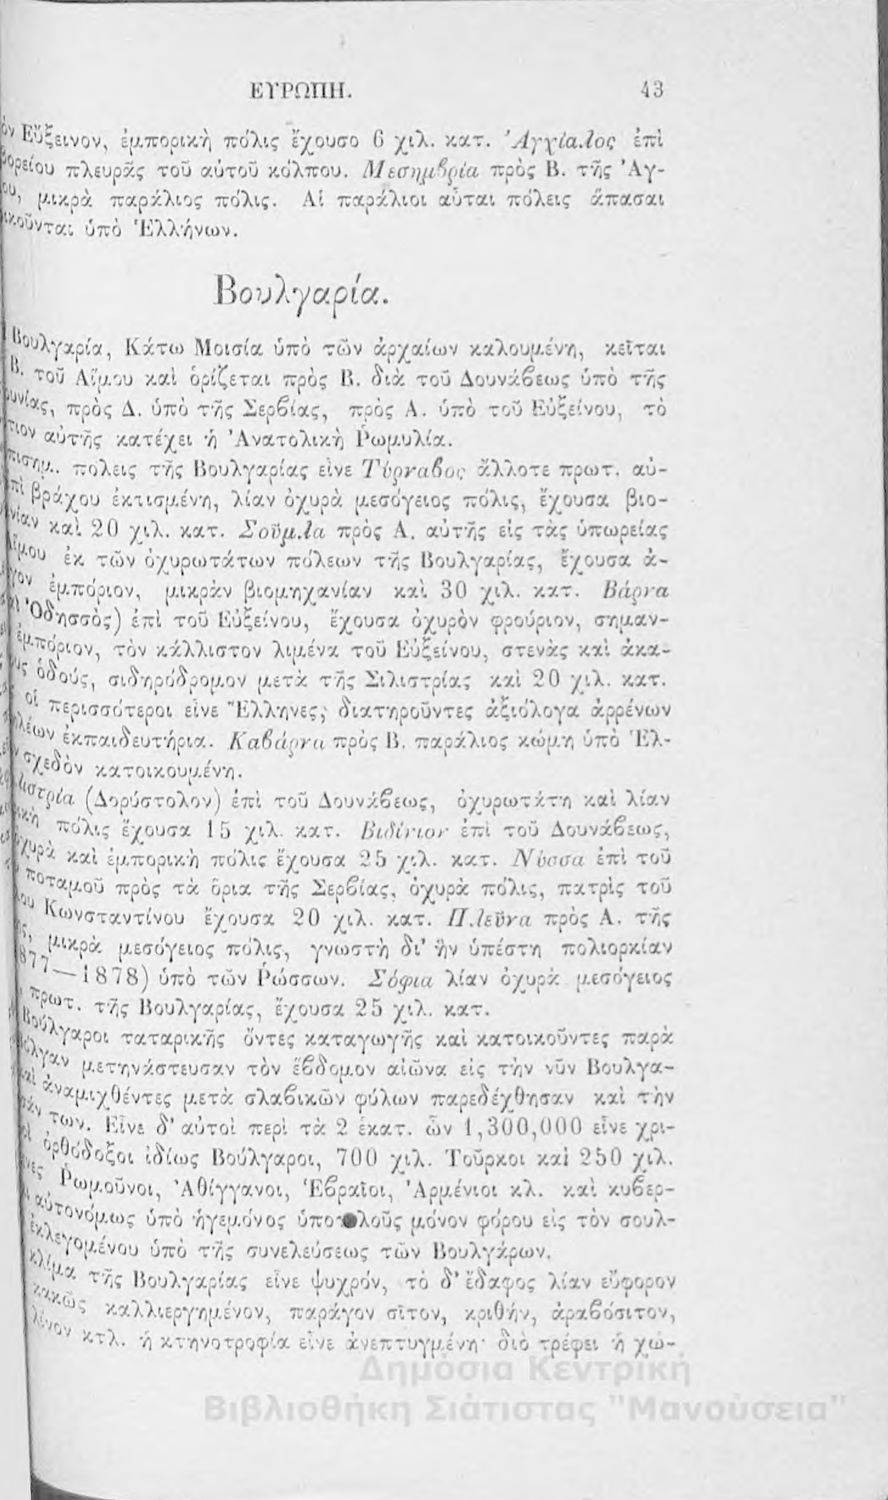 ΕΥΡΩΠΗ. 43
Εὔξεινον, ἐμπορικὴ πόλις ἔχουσα 6 χιλ. κατ. Ἀγχίαλος ἐπὶ
πλευρᾶς τοῦ αὐτοῦ κόλπου. Μεσημβρία πρὸς Β. τῆς Ἀγ-
μικρὰ παράλιος πόλις. Αἱ παράλιοι αὗται πόλεις ἅπασαι
ὑπὸ Ἑλλήνων.
Βουλγαρία.
Βουλγαρία, Κάτω Μοισία ὑπὸ τῶν ἀρχαίων καλουμένη, κεῖται
Β. τοῦ Αἵμου καὶ ὁρίζεται πρὸς Β. διὰ τοῦ Δουνάβεως ὑπὸ τῆς
πρὸς Δ. ὑπὸ τῆς Σερβίας, πρὸς Α. ὑπὸ τοῦ Εὐξείνου, τὸ
αὐτῆς κατέχει ἡ Ἀνατολικὴ Ῥωμυλία.
πόλεις τῆς Βουλγαρίας εἶνε Τύρναβος ἄλλοτε πρωτ. αὐ-
βράχου ἐκτισμένη, λίαν ὀχυρὰ μεσόγειος πόλις, ἔχουσα βιο-
καὶ 20 χιλ. κατ. Σοῦμλα πρὸς Α. αὐτῆς εἰς τὰς ὑπωρείας
ἐκ τῶν ὀχυρωτάτων πόλεων τῆς Βουλγαρίας, ἔχουσα ἀ-
ἐμπόριον, μικρὰν βιομηχανίαν καὶ 30 χιλ. κατ. Βάρνα
Ὀδησσὸς) ἐπὶ τοῦ Εὐξείνου, ἔχουσα ὀχυρὸν φρούριον, σημαν-
ἐμπόριον, τὸν κάλλιστον λιμένα τοῦ Εὐξείνου, στενὰς καὶ ἀκα-
ὁδούς, σιδηρόδρομον μετὰ τῆς Σιλιστρίας καὶ 20 χιλ. κατ.
οἱ περισσότεροι εἶνε Ἕλληνες, διατηροῦντες ἀξιόλογα ἀρρένων
ἐκπαιδευτήρια. Καβάρνα πρὸς Β. παράλιος κώμη ὑπὸ Ἑλ-
σχεδὸν κατοικουμένη.
(Δορύστολον) ἐπὶ τοῦ Δουνάβεως, ὀχυρωτάτη καὶ λίαν
πόλις ἔχουσα 15 χιλ. κατ. Βιδίνιον ἐπὶ τοῦ Δουνάβεως,
καὶ ἐμπορικὴ πόλις ἔχουσα 25 χιλ. κατ. Νύσσα ἐπὶ τοῦ
ποταμοῦ πρὸς τὰ ὅρια τῆς Σερβίας, ὀχυρὰ πόλις, πατρὶς τοῦ
Κωνσταντίνου ἔχουσα 20 χιλ. κατ. Πλεῦνα πρὸς Α. τῆς
μικρὰ μεσόγειος πόλις, γνωστὴ δι' ἣν ὑπέστη πολιορκίαν
—1878) ὑπὸ τῶν Ῥώσσων. Σόφια λίαν ὀχυρὰ μεσόγειος
πρωτ. τῆς Βουλγαρίας, ἔχουσα 25 χιλ. κατ.
Βούλγαροι ταταρικῆς ὄντες καταγωγῆς καὶ κατοικοῦντες παρὰ
μετηνάστευσαν τὸν ἕβδομον αἰῶνα εἰς τὴν νῦν Βουλγα-
ἀναμιχθέντες μετὰ σλαβικῶν φύλων παρεδέχθησαν καὶ τὴν
των. Εἶνε δ' αὐτοὶ περὶ τὰ 2 ἑκατ. ὧν 1,300,000 εἶνε χρι-
ὀρθόδοξοι ἰδίως Βούλγαροι, 700 χιλ. Τοῦρκοι καὶ 250 χιλ.
Ῥωμοῦνοι, Ἀθίγγανοι, Ἑβραῖοι, Ἀρμένιοι κλ. καὶ κυβερ-
αὐτονόμως ὑπὸ ἡγεμόνος ὑποτελοῦς μόνον φόρου εἰς τὸν σουλ-
ἐκλεγομένου ὑπὸ τῆς συνελεύσεως τῶν Βουλγάρων.
κλίμα τῆς Βουλγαρίας εἶνε ψυχρόν, τὸ δ' ἔδαφος λίαν εὔφορον
κακῶς καλλιεργημένον, παράγον σῖτον, κριθήν, ἀραβόσιτον,
λίνον κτλ. ἡ κτηνοτροφία εἶνε ἀνεπτυγμένη· διὸ τρέφει ἡ χώ-
Δημόσια Κεντρική
Βιβλιοθήκη Σιάτιστας "Μανούσεια"